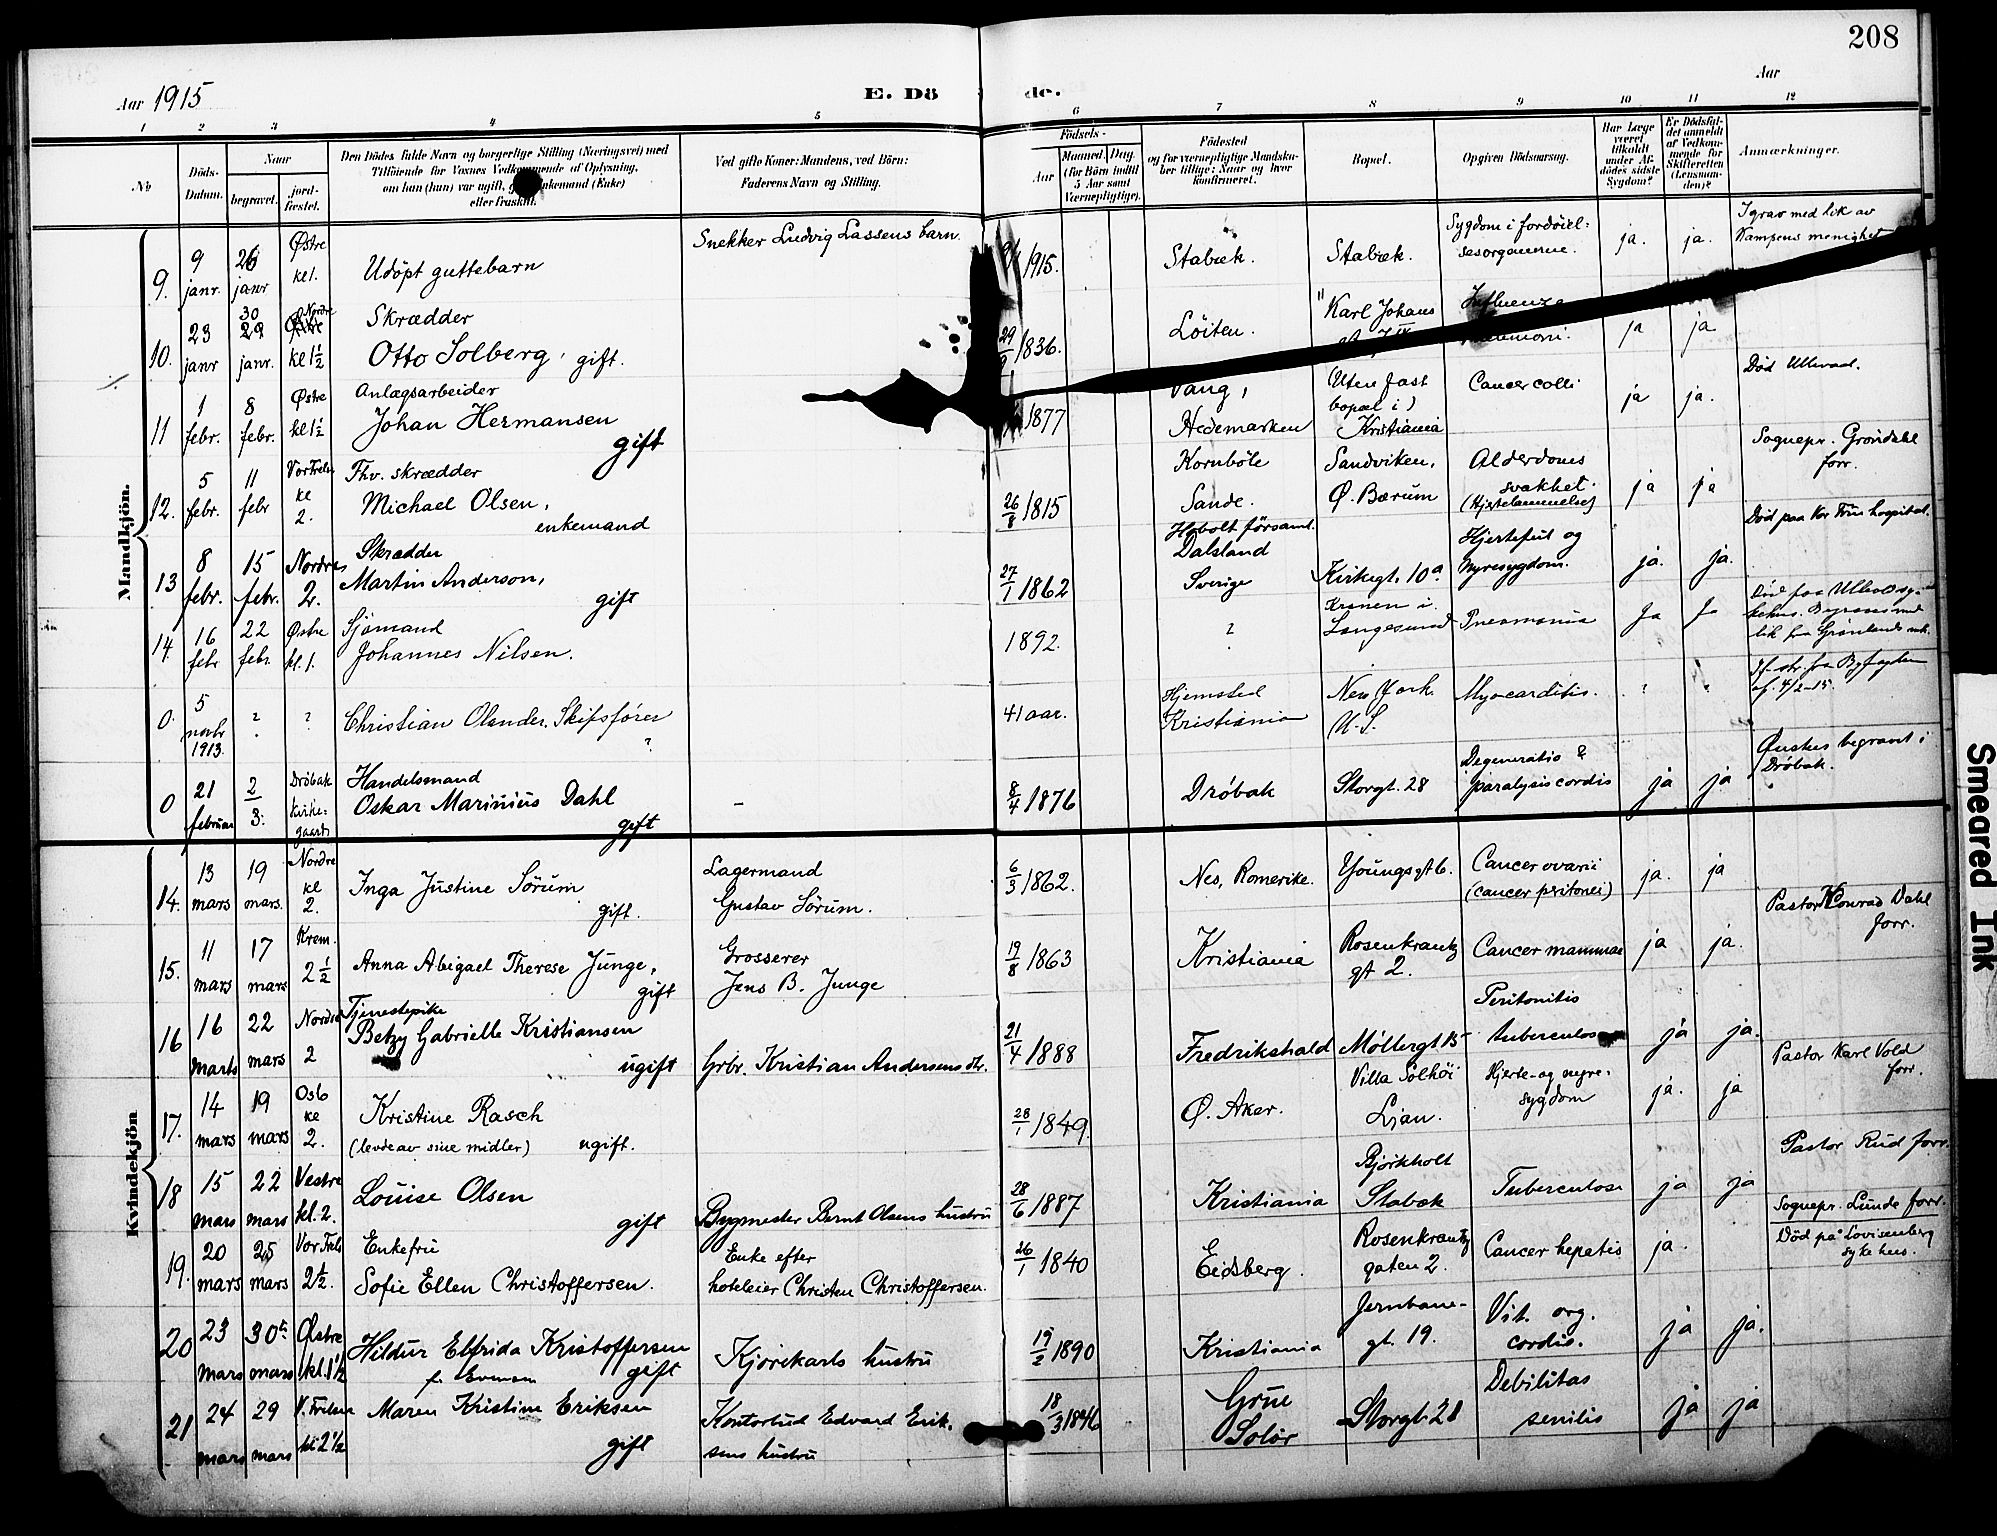 208
Aar 1915
E. Dö de.
Aar
1 2 3 4 5 6 7 8 9 10 11 12
No
Döds-
Datum.
Naar
begravet.
jord-
fæstet.
Den Dödes fulde Navn og borgerlige Stilling (Næringsvei) med
Tilföiende for Voxnes Vedkommende af Oplysning,
om han (hun) var ugift, gift, Enkemand (Enke)
eller fraskilt.
Ved gifte Koner: Mandens, ved Börn:
Faderens Navn og Stilling.
Födsels-
Aar
Maaned. Dag.
(for Börn indtil
5 Aar samt
Værnepligtige).
Födested
og for værnepligtige Mandska-
ber tillige: Naar og hvor
konfirmeret.
Bopæl.
Opgiven Dödsaarsag.
Har Læge
været
tilkaldt
under Af-
dödes sidste
Sygdom?
Er Dödsfal-
det anmeldt
af Vedkom-
mende for
Skifteretten
(Lensman-
den)?
Anmærkninger.
Mandkjön.
9. 9 janr. 26 janr Østre kl 1. Udöpt guttebarn Snekker Ludvig Lassens barn. 1915. Stabæk. Stabæk. Sygdom i fordöiel-
sesorganerne. ja. ja. I grav med lik av
Kampens menighet
10. 23 janr 30 29 janr. Nordre Østre kl 1½ Skrædder
Otto Solberg, gift. 29 1836. Löiten. Karl Johans Influenza ja ja
11 1 febr. 8 febr. Østre kl 1½ Anlægsarbeider
Johan Hermansen
gift 1877 Vang,
Hedemarken (Uten fast
bopæl i)
Kristiania Cancer colli ja ja. Död Ullevaal.
12. 5 febr. 11 febr Vor Frels kl 2. Fhv. skrædder
Michael Olsen,
enkemand 26/8 1815 Kornböle
Sande. Sandviken,
Ø. Bærum Alderdoms
svakhet. (Hjertelammelse) ja ja Sognepr. Gröndahl
forr.
13 8 febr. 15 febr. Nordre 2. Skrædder
Martin Anderson,
gift 27/1 1862 Håbolt församl.
Dalsland
Sverige Kirkegt. 10a. Hjertefeil og
nyresygdom. ja. ja. Död paa Vor Frue hospital.
14. 16 febr 22 febr. Østre kl. 1. Sjömand
Johannes Nilsen. 1892. ? Kranen i
Langesund Pneumonia Ja Ja Död paa Ullevaal sy-
kehus.
0. 5 novbr 1913. ? ? Christian Olander, Skifsförer
? 41 aar. Hjemsted
Kristiania New York.
U.S. Myocarditis. ? "
0 21 februar 2/3. Dröbak kirke-
gaard Handelsmand
Oskar Marinius Dahl
gift – 8/4 1876 Dröbak Storgt. 28 Degeneratio &
paralysis cordis ja ja Önskes begravet i
Dröbak.
Kvindekjön
14. 13 mars 19 mars. Nordre kl 2. Inga Justine Sörum
gift. Lagermand
Gustav Sörum. 6/3 1862. Nes, Romerike. Youngsgt 6. Cancer ovarii
(cancer pritonei) ja. ja
15. 11 mars 17 mars Krem. 2½ Anna Abigael Therese Junge,
gift Grosserer
Jens B. Junge 19/8 1863 Kristiania Rosenkrantz
gt 2. Cancer mammae ja ja. Pastor Konrad Dahl
forr.
16 16 marts 22 mars Nordre 2 Tjenestepike
Betzy Gabrielle Kristiansen
ugift Grbr. Kristian Andersens dtr. 21/4 1888 Fredrikshald Möllergt 15 Peritonitis
tuberculosa ja ja.
17. 14 mars 19 mars Oslo kl 2. Kristine Rasch
(levde av sine midler) ugift. 28/1 1849. Ø. Aker. Villa Solhöi
Ljan. Hjerte- og nyre-
sygdom ja. ja Pastor Karl Vold
forr.
18 15 mars 22 mars Vestre kl. 2. Louise Olsen
gift Bygmester Bernt Olsens hustru 28/6 1887 Kristiania Bjørkholt
Stabæk Tuberculose ja ja Pastor Rud forr.
19. 20 mars 25 mars Vor Frels 2½. Enkefru
Sofie Ellen Christoffersen. Enke efter
hoteleier Christen Christoffersen. 26/1 1840 Eidsberg. Rosenkrantz
gaten 2. Cancer hepatis ja. Sognepr. Lunde forr.
Död på Lovisenberg
sykehus.
20 23 mars 30te mars Østre kl. 1½ Hildur Elfrida Kristoffersen
f. Evensen gift Kjörekarls hustru 19/2 1890 Kristiania Jernbane-
gt. 19. Vit. org.
cordis. ja ja.
21 24 mars 29 mars V. Frelser kl 2½ Maren Kristine Eriksen
gift Kontorbud Edvard Erik-
sens hustru 18/3 1846 Grue
Solør Storgt. 28 Debilitas
senilis ja ja
Smeared Ink